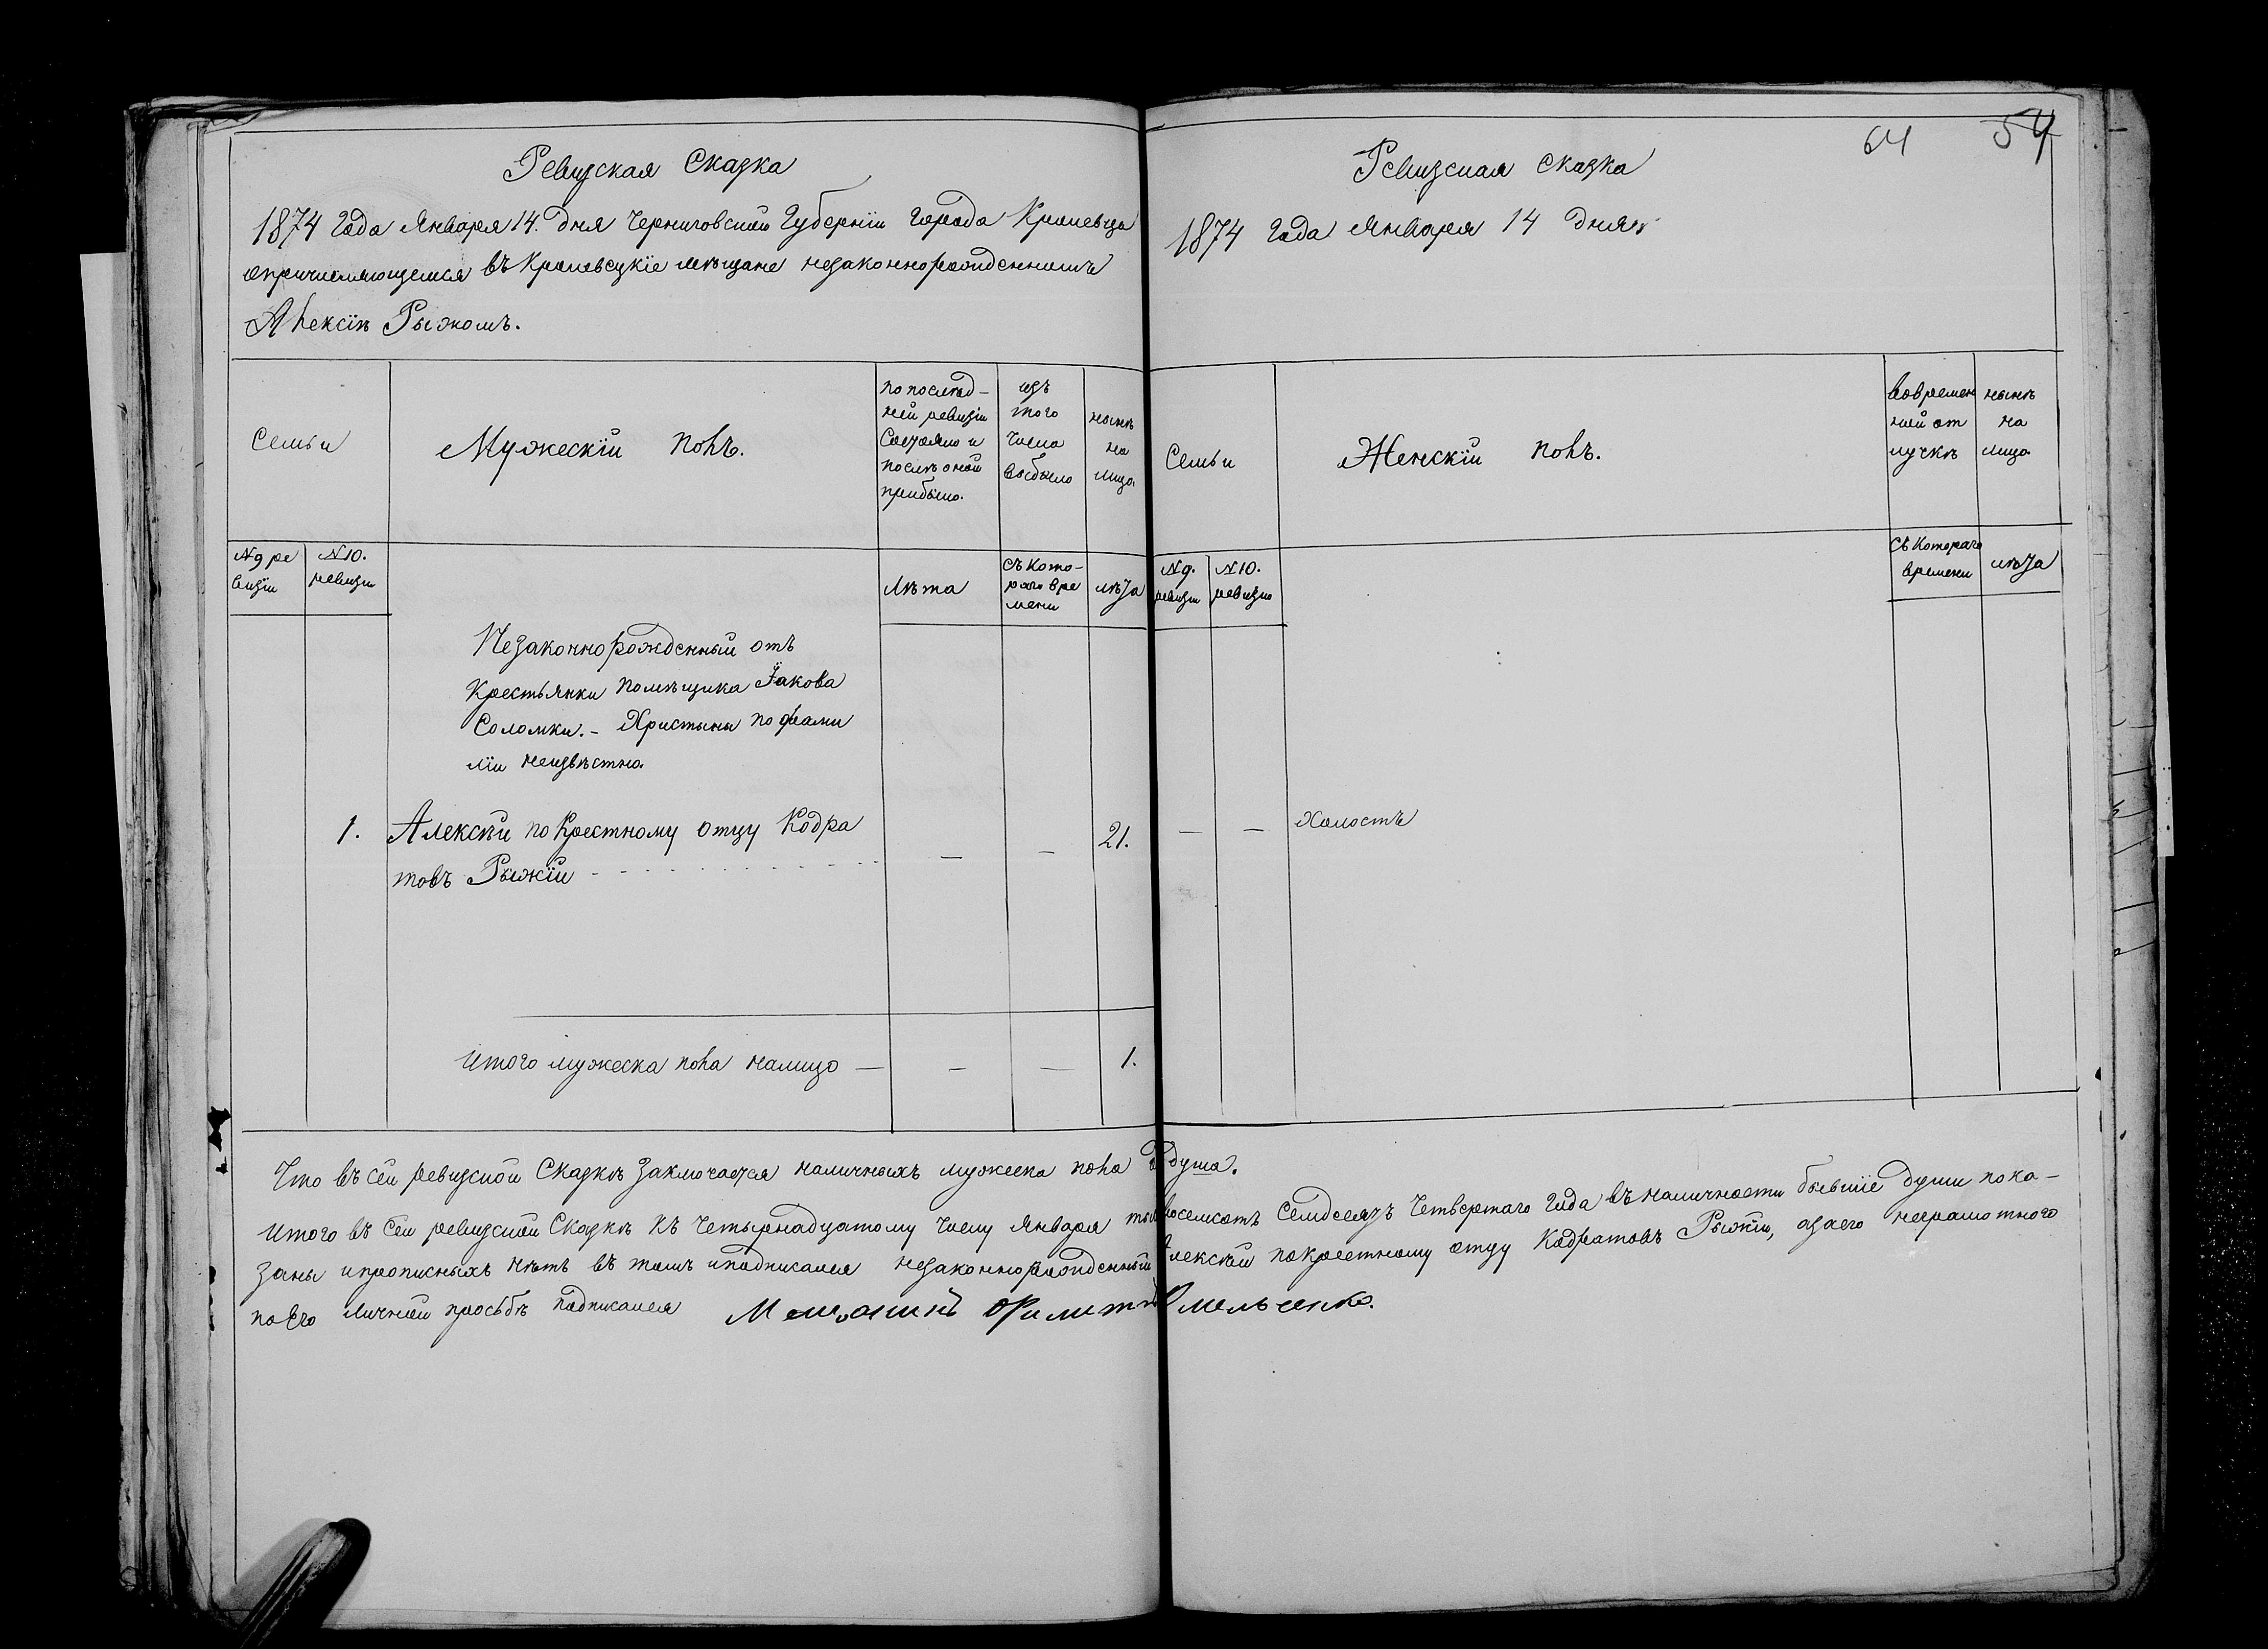 Ревизская Сказка
1874 Года Января 14. дня Черниговской Губернии Города Кролевца
опричисляющемся въ Кролевецкіе мѣщане незаконнорожденномъ
Алексѣѣ Рыжомъ.
Семьи
Мужескій полъ.
по послѣд-
ней ревизіи
Состояло и
послѣ оной
прибыло.
изъ
того
числа
выбыло
нынѣ
на
лицо.
N 9 ре
визіи
N 10.
ревизіи
Лѣта
съ Кото-
раго вре
мени
лѣта
Незаконнорожденный отъ
Крестьянки помѣщика Іакова
Соломки. - Христины по фами
ліи неизвѣстно.
1. Алексѣй по Крестному отцу Кодра
товъ Рыжій - - 21.
Итого мужеска пола налицо — — — 1.
64 54
Ревизская Сказка
1874 Года Января 14 дня
Семьи
Женскій полъ.
вовремен
ной от
лучкѣ
нынѣ
на
лицо
N 9.
ревизіи
N 10.
ревизіи
съ Котораго
времени
лѣта
— — Холостъ
Что въ сей ревизской Сказкѣ Заключается наличныхъ мужеска пола душа.
Итого въ сей ревизской Сказкѣ Къ Четырнадцатому Числу Января восемсотъ Семдесятъ Четвертаго Года въ наличности бывшіе души пока-
заны и прописныхъ нѣтъ въ томъ и подписался незаконнорожденный Алексѣй по Крестному отцу Кодратовъ Рыжій, а за его неграмотного
по Его личной просьбѣ подписался Мещанинъ Филипъ Омельченко.